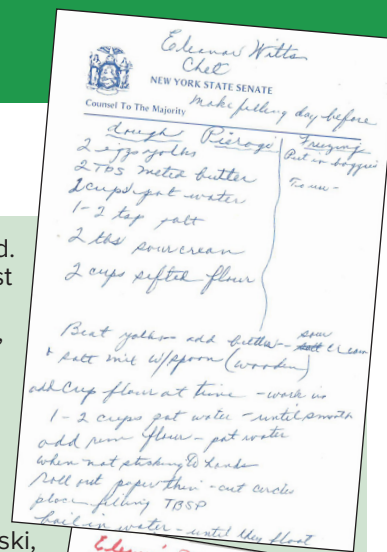 Eleanor Witts
Chet
NEW YORK STATE SENATE
Counsel To The Majority
Make filling day before
dough Pierogi
2 eggs yolks
2 TBS melted butter
2 cups pot water
1-2 tsp salt
2 tbs sour cream
2 cups sifted flour
Freezing
Put in baggies
Beat yolks add butter - sour cream
+ salt mix w/spoon (wooden)
add cup flour at time - work in
1-2 cups pot water - until smooth
add rem flour - pot water
when not sticking to hands
roll out paper thin - cut circles
place filling TBSP
boil in water - until they float
d.
st
,
ski,